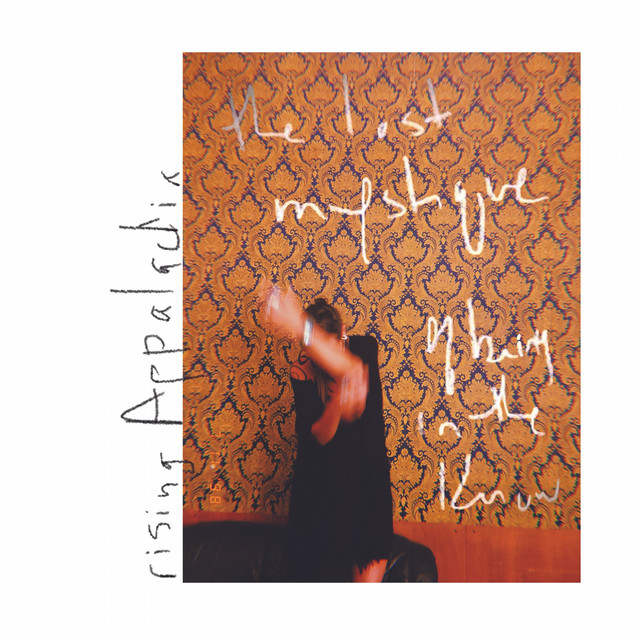 the lost
mystique
of being
in the
Know
rising Appalachia